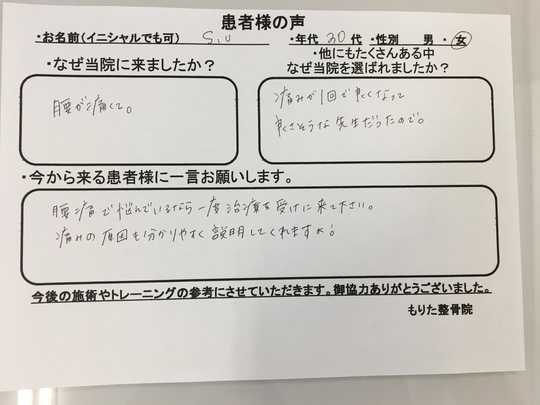 患者様の声
・お名前(イニシャルでも可) S.U ・年代 30代 ・性別 男・女
・なぜ当院に来ましたか?
腰が痛くて。
・他にもたくさんある中
なぜ当院を選ばれましたか?
痛みが1回で良くなって
良さそうな先生だったので。
・今から来る患者様に一言お願いします。
腰痛で悩んでいるなら一度治療を受けに来て下さい。
痛みの原因も分かりやすく説明してくれますよ!
今後の施術やトレーニングの参考にさせていただきます。御協力ありがとうございました。
もりた整骨院